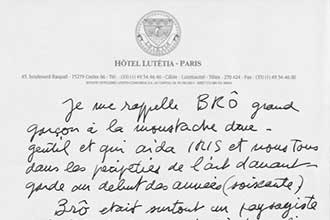 HÔTEL LUTÉTIA - PARIS
45, boulevard Raspail - 75279 Cedex 06 - Tél. : (33) (1) 49.54.46.46 - Câble : Lutetiaotel - Télex : 270 424 - Fax : (33) (1) 49.54.46.00
Je me rappelle BRÔ grand
garçon à la moustache doux -
gentil et qui aida IRIS et nous tous
dans les péripéties de l'art d'avant
garde au debut des années (soixante)
Brô etait surtout un paysagiste